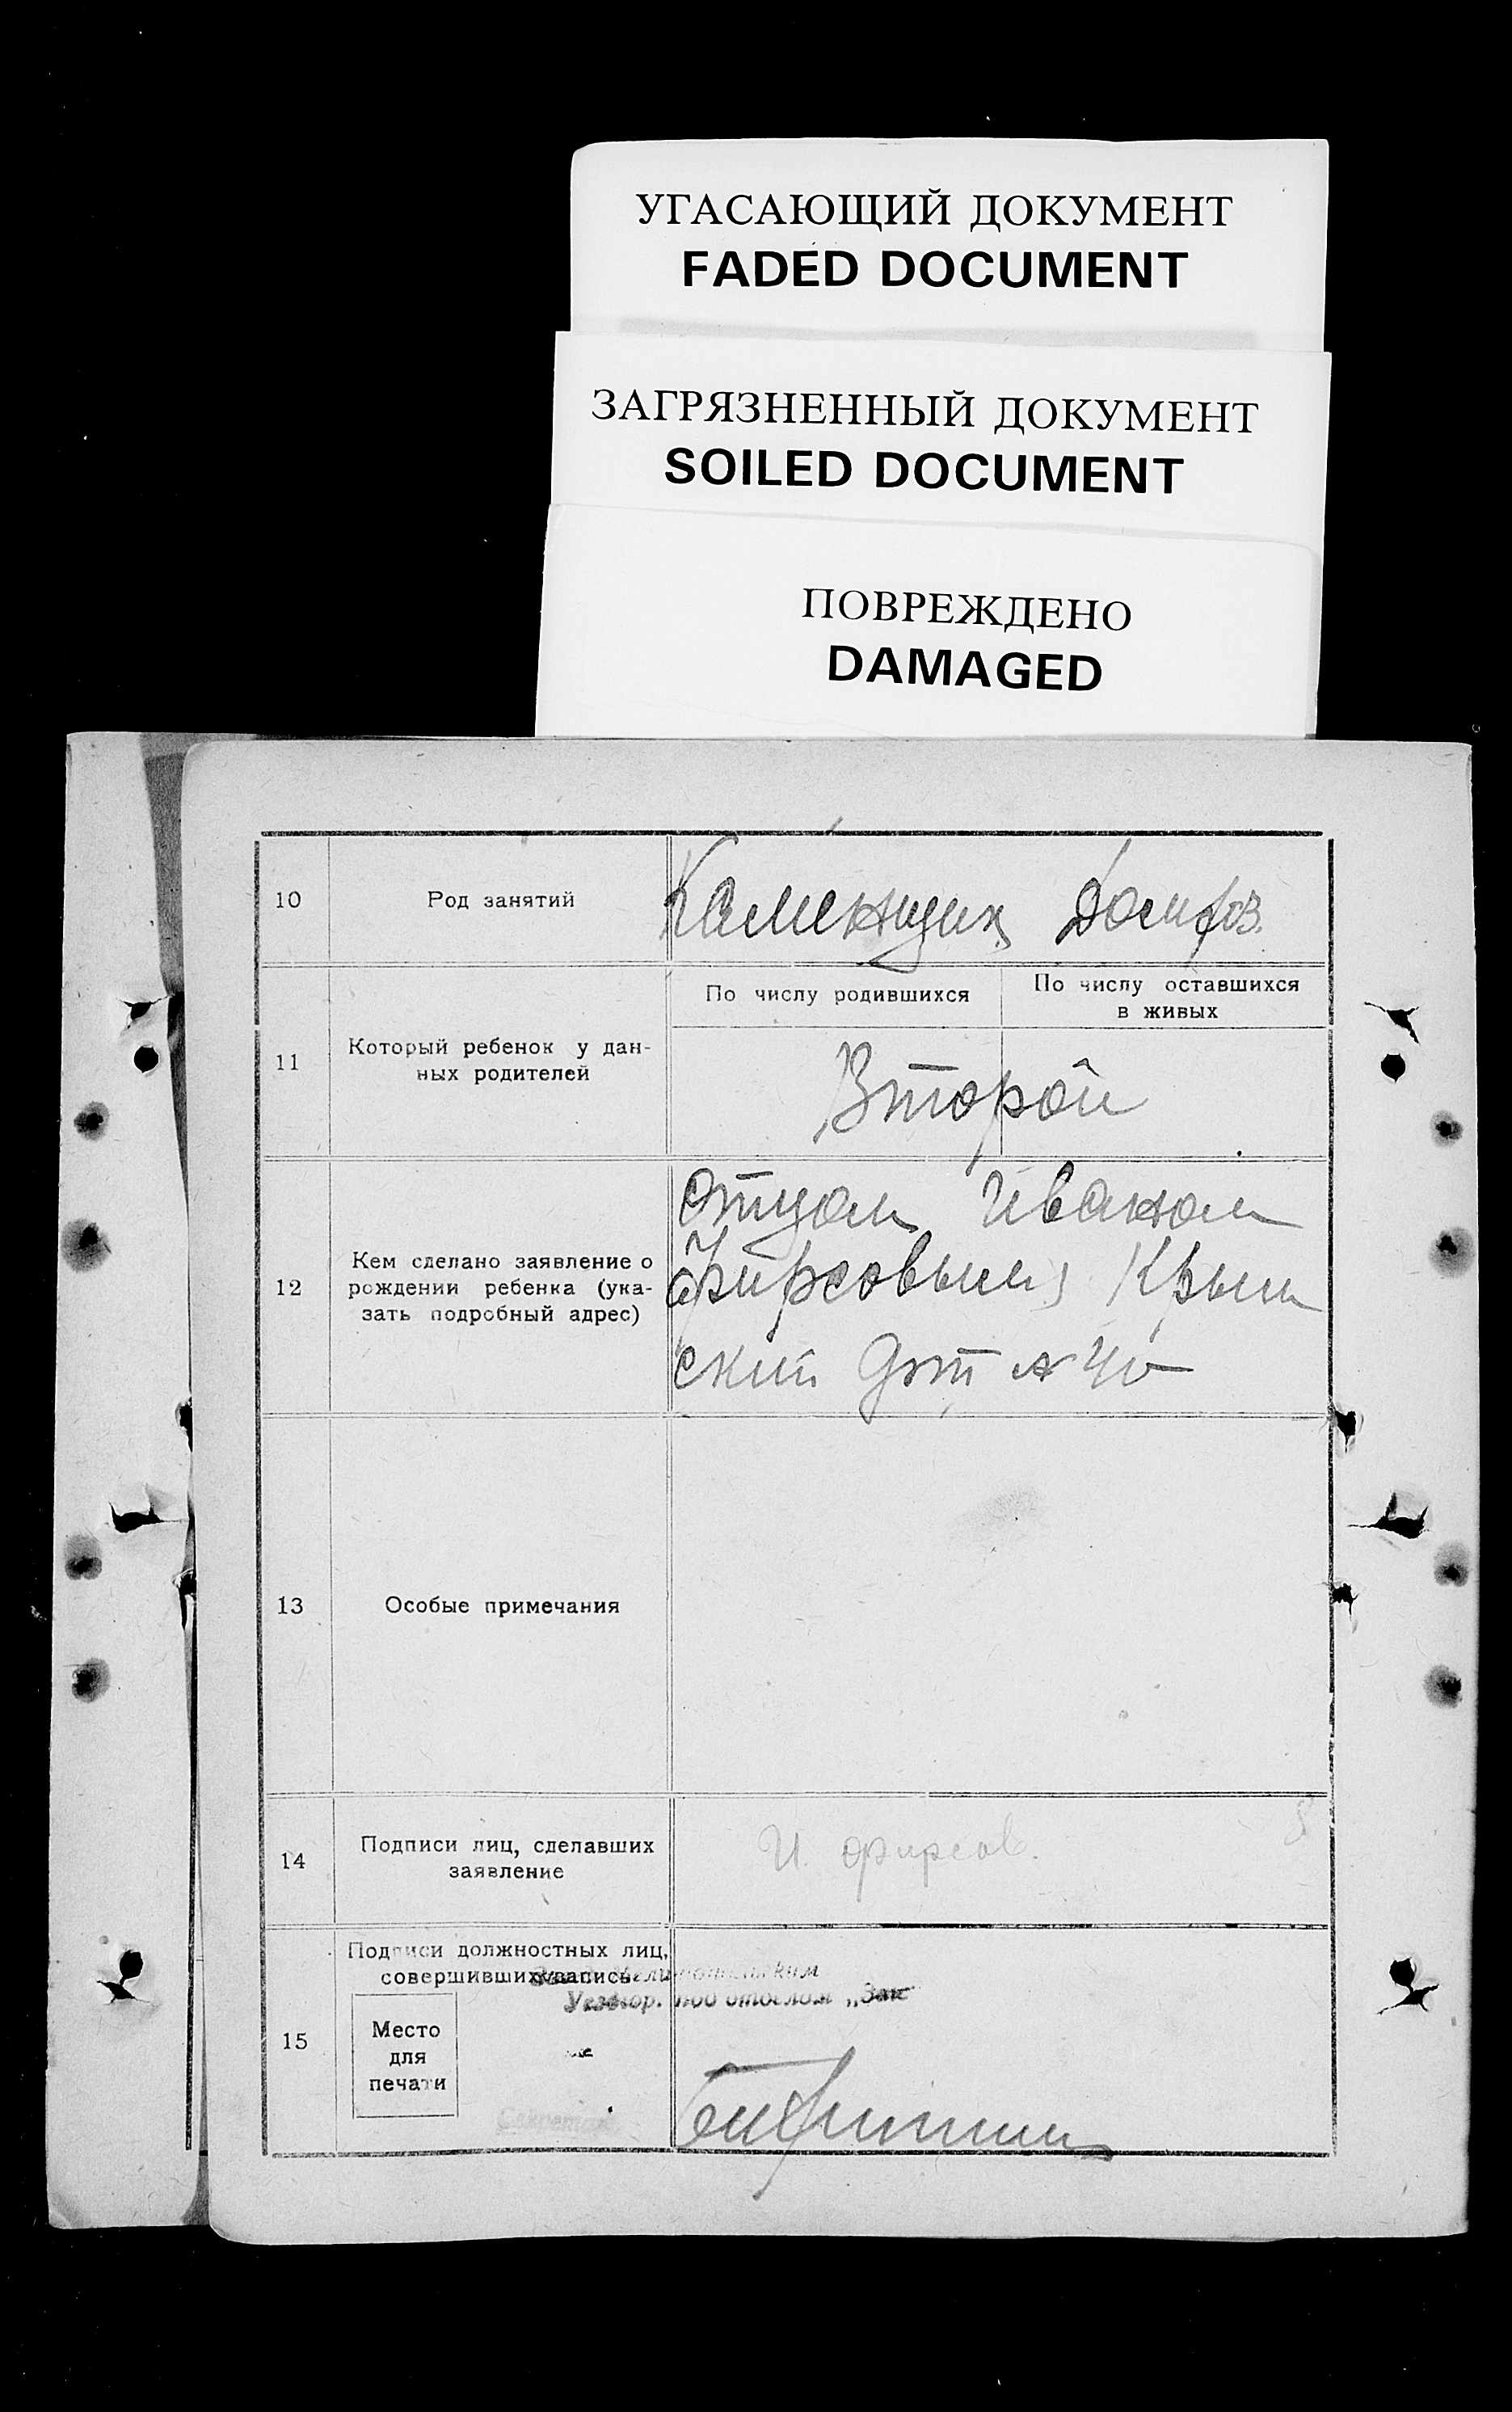 УГАСАЮЩИЙ ДОКУМЕНТ
FADED DOCUMENT
ЗАГРЯЗНЕННЫЙ ДОКУМЕНТ
SOILED DOCUMENT
ПОВРЕЖДЕНО
DAMAGED
10
Род занятий
Каменщик
11
Который ребенок у дан-
ных родителей
По числу родившихся
По числу оставшихся
в живых
Второй
12
Кем сделано заявление о
рождении ребенка (ука-
зать подробный адрес)
отцом Иваном
Фирсовым, Крым
ский
13
Особые примечания
14
Подписи лиц, сделавших
заявление
И. Фирсов.
15
Подписи должностных лиц,
совершивших запись
под отделом „Загс
Место
для
печати